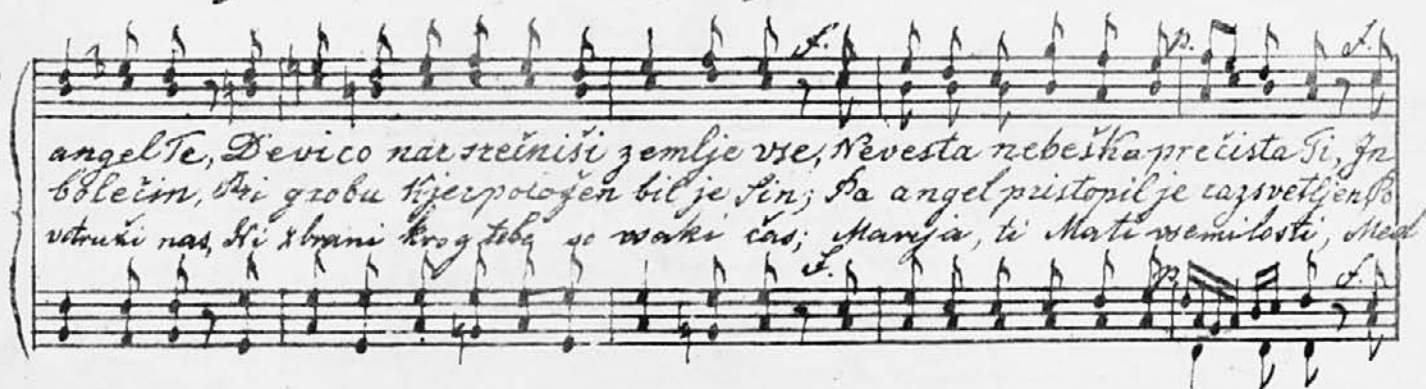 angel Te, Devico nar srečniši zemlje vse, Nevesta nebeška prečista Ti, In
bolečin, Pri grobu kjer položen bil je Sin; Pa angel pristopil je razsvetljen Po
nas, zbrani krog tebe so vsaki čas; Marija, ti Mati vse milosti, Med
f. p. f.
f. p. f.